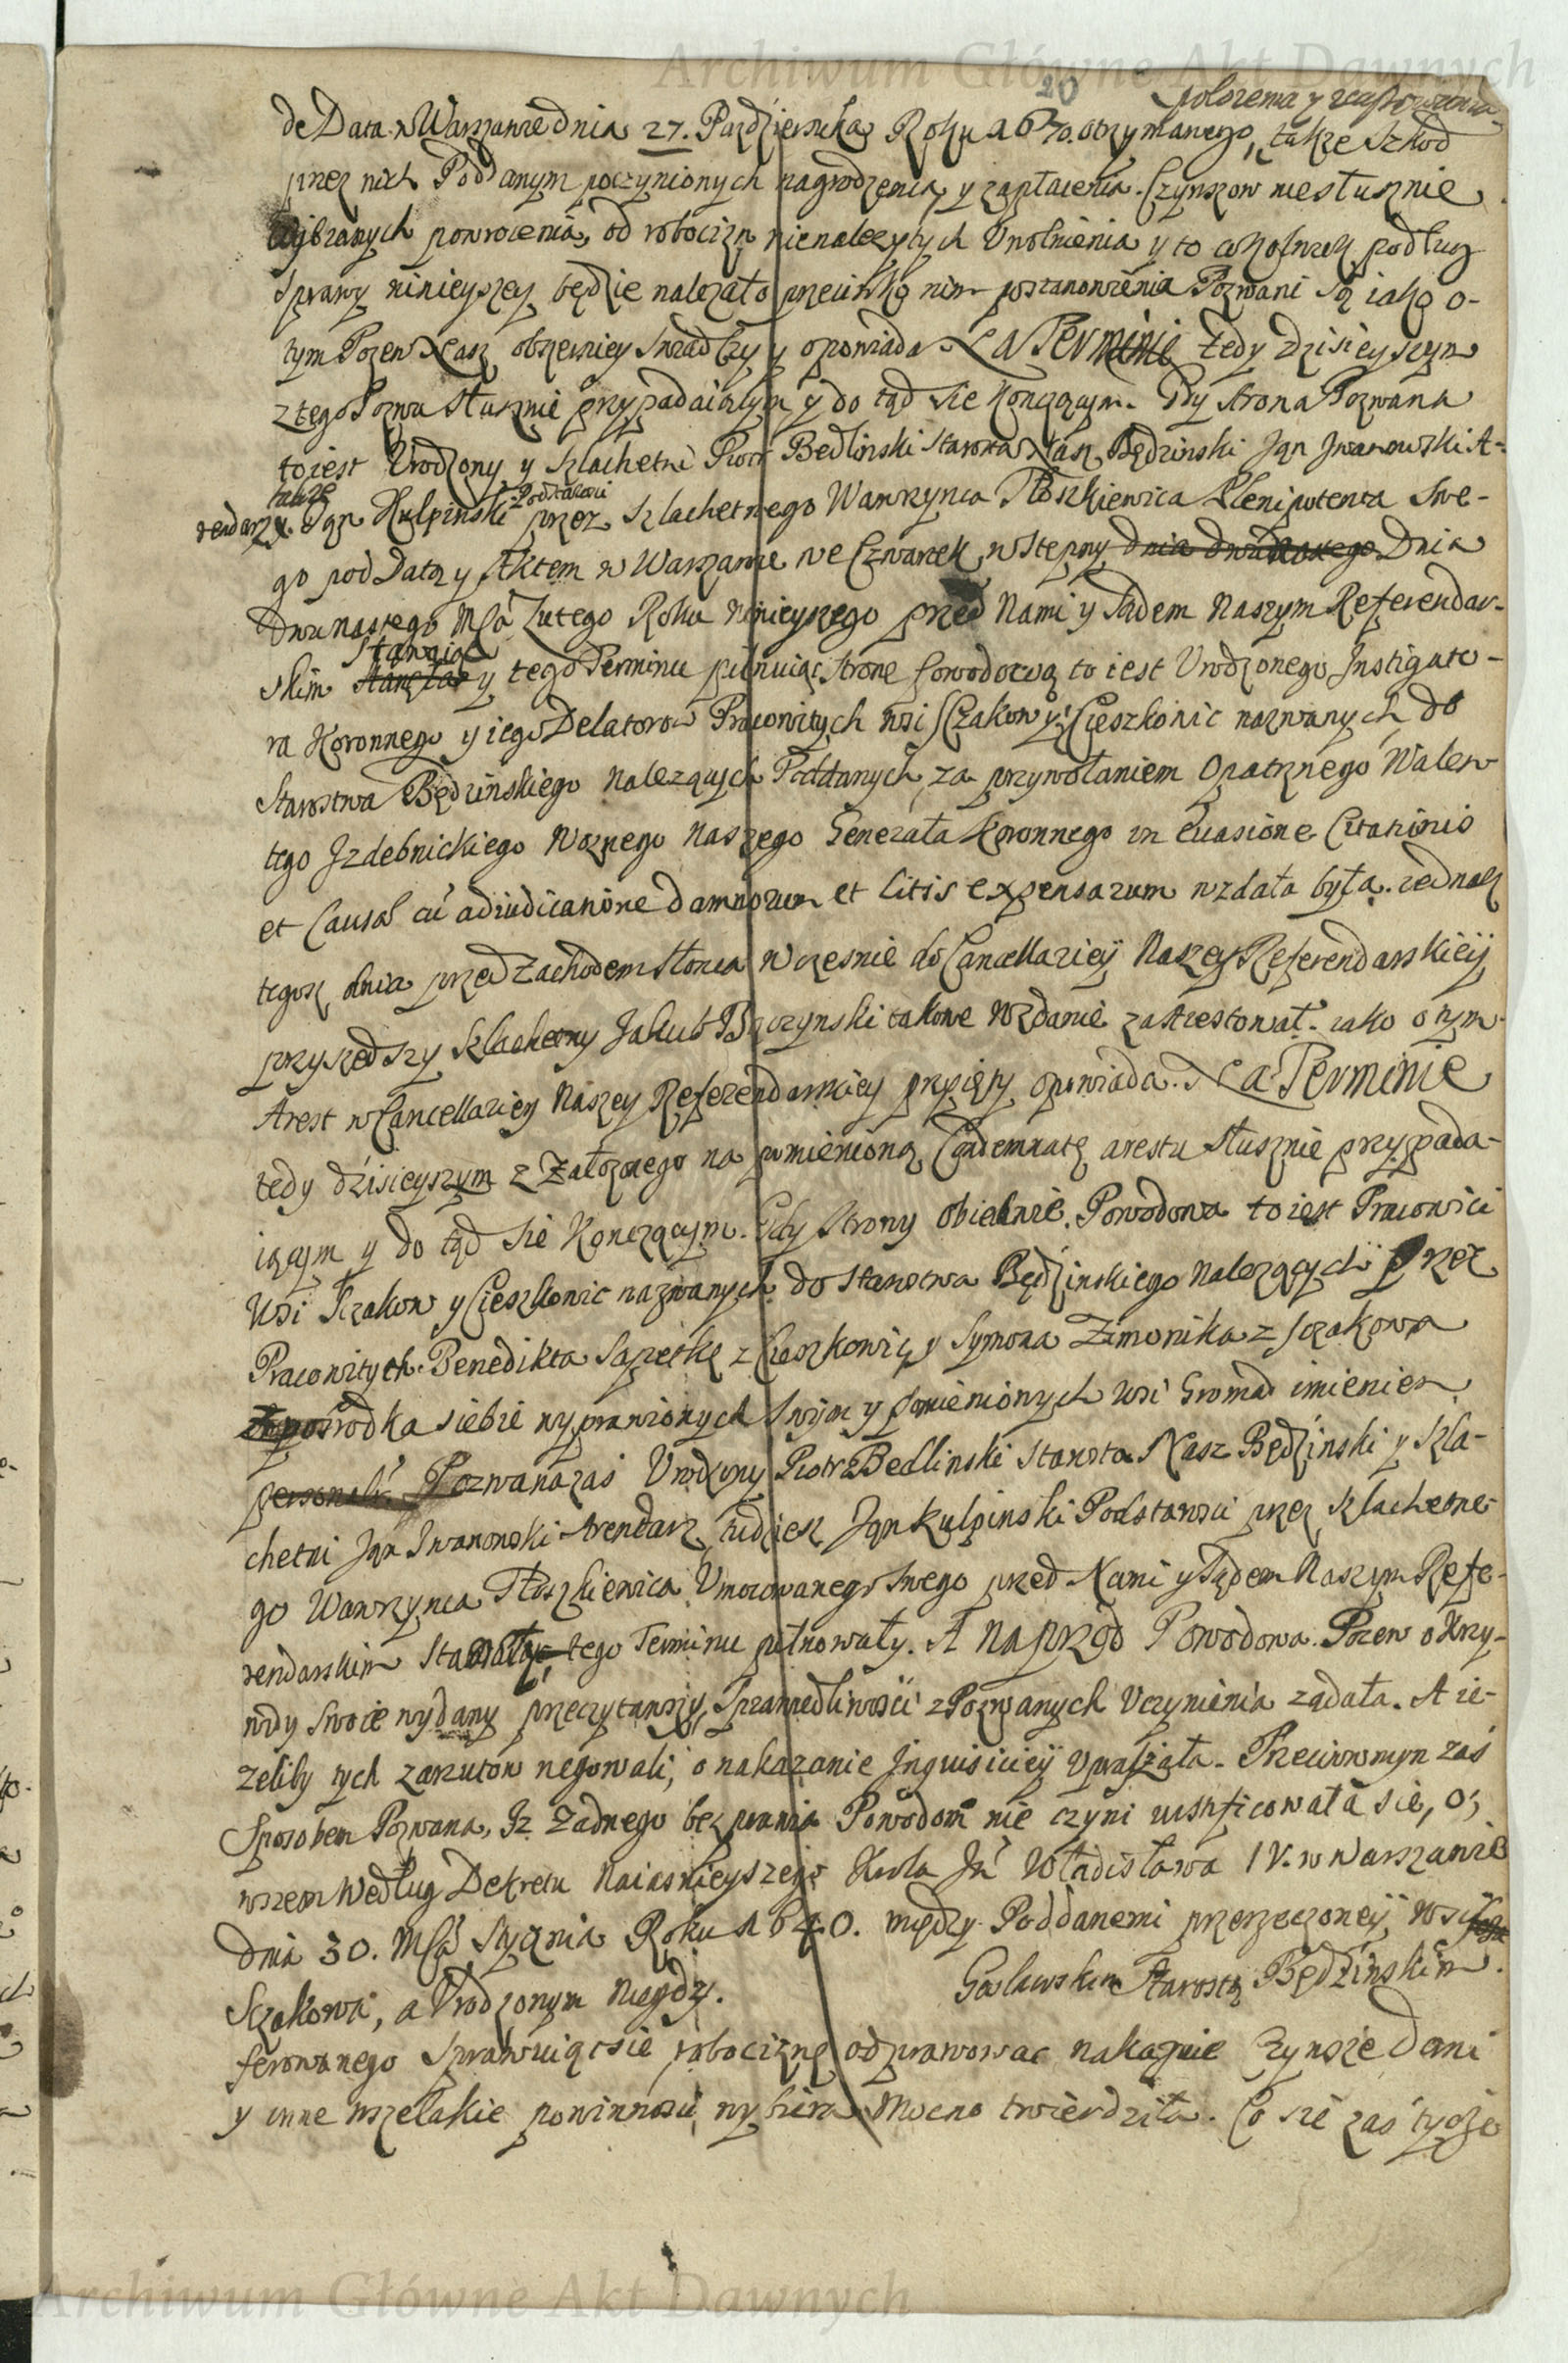 Archiwum Główne Akt Dawnych
20
położenia y zachowania
de Data w Warszawie dnia 27. Pazdziernika Roku 1670. otrzymanego, także szkod
przez nich Poddanym poczynionych nagrodzenia, y zapłacenia. Czynszow niesłusznie
wybranych powrocenia, od robocizn nienalezytych Uwolnienia y to cokolwiek podług
Sprawy ninieyszey będzie nalezało przeciwko nim postanowienia Pozwani są iako o-
tym Pozew Nasz obszerniey swiadczy y opowiada. Na Terminie tedy dzisieyszym
z tego Pozwu słusznie przypadaiącym y do tąd sie konczącym. Gdy strona Pozwana
to iest Urodzony y szlachetni Piotr Bedlinski Starosta Nasz Będzinski Jan Iwanowski A-
rendarz y. także Jan Kulpinski Podstarosci przez szlachetnego Wawrzynca Tłoszkiewica Plenipotenta Swe-
go pod Datą y Aktem w Warszawie we Czwartek wstępny dnia dwunastego Dnia
dwunastego Msca Lutego Roku ninieyszego przed Nami y Sądem Naszym Referendar-
skim Stawaiąc y tego Terminu pilnuiąc, strone powodową to iest Urodzonego Instigato-
ra Koronnego y iego Delatorow Pracowitych wsi Sczakow y Cieszkowic nazwanych do
Starostwa Będzinskiego nalezących Poddanych, za przywołaniem Opatrznego Walen-
tego Izdebnickiego Woznego Naszego Generała Koronnego in evasione Citationis
et Causæ cu adiudicatione damnorum et litis expensarum wzdała była. iednak
tegosz dnia przed zachodem słonca wczesnie do Cancellariey Naszey Referendarskiey
przyszedszy szlachetny Jakub Bączynski takowe wzdanie zaarestował. iako o tym
Arest w Cancellariey Naszey Referendarskiey przyięty opowiada. Na Terminie
tedy dzisieyszym z załozonego na pomienioną Condemnatę arestu słusznie przypada-
iącym y do tąd sie konczącym. Gdy strony obiedwie. Powodowa to iest Pracowici
Wsi Sczakow y Cieszkowic nazwanych do Starostwa Będzinskiego nalezących przez
Pracowitych Benedikta Sapetkę z Cieszkowic y Symona Zimonika z Sczakowa
z posrodka siebie wyprawionych swym y pomienionych wsi Gromad imieniem
personalr. Pozwana zas Urodzony Piotr Bedlinski Starosta Nasz Będzinski y szla-
chetni Jan Iwanowski Arendarz, tudziesz Jan Kulpinski Podstarosci przez szlachetne-
go Wawrzynca Tłoszkiewica Umocowanego swego przed Nami y Sądem Naszym Refe-
rendarskim stawały tego Terminu pilnowały. A naprzod Powodowa. Pozew o krzy-
wdy swoie wydany przeczytawszy, sprawiedliwosci z Pozwanych Uczynienia ządała. A ie-
zeliby tych zarzutow negowali, o nakazanie Inquisiciey Upraszała. Przeciwnym zas
sposobem Pozwana, Iz zadnego bezprawia Powodom nie czyni iustificowała sie, o-
wszem według Dekretu Naiasnieyszego Krola Jm Władisława IV. w Warszawie
dnia 30. Msca Stycznia Roku 1640. między Poddanemi przerzeczoney wsi
Sczakowa, a Urodzonym niegdy. Gosławskim Starostą Będzinskim.
ferowanego sprawuiąc sie robociznę odprawowac nakazuie Czynsze dani
y inne wszelakie powinnosci wybiera mocno twierdziła. Co sie zas tycze
Archiwum Główne Akt Dawnych